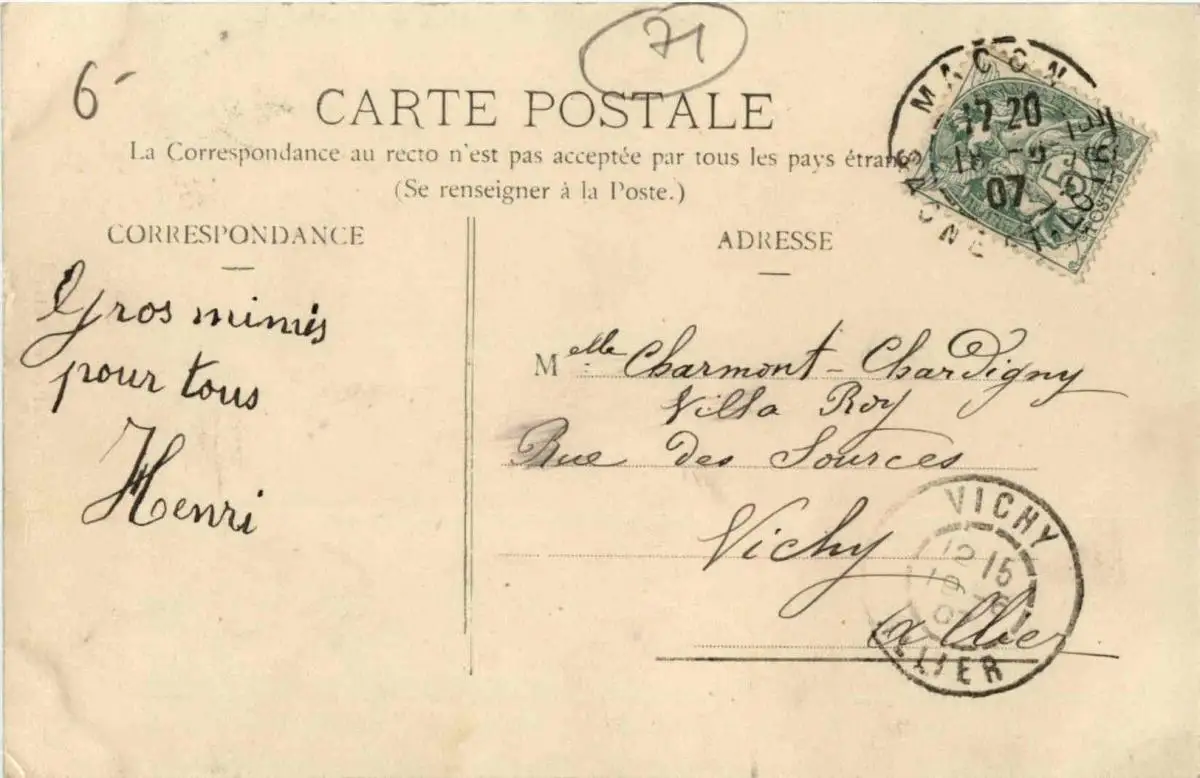 6-
71
CARTE POSTALE
La Correspondance au recto n'est pas acceptée par tous les pays étran
(Se renseigner à la Poste.)
MACON
17 20
07
SAONE-ET-LOIRE
5
POSTES
CORRESPONDANCE
ADRESSE
Gros mimis
pour tous
Henri
Melle Charmont-Chardigny
Villa Roy
Rue des Sources
Vichy
Allier
VICHY
12 15
07
ALLIER